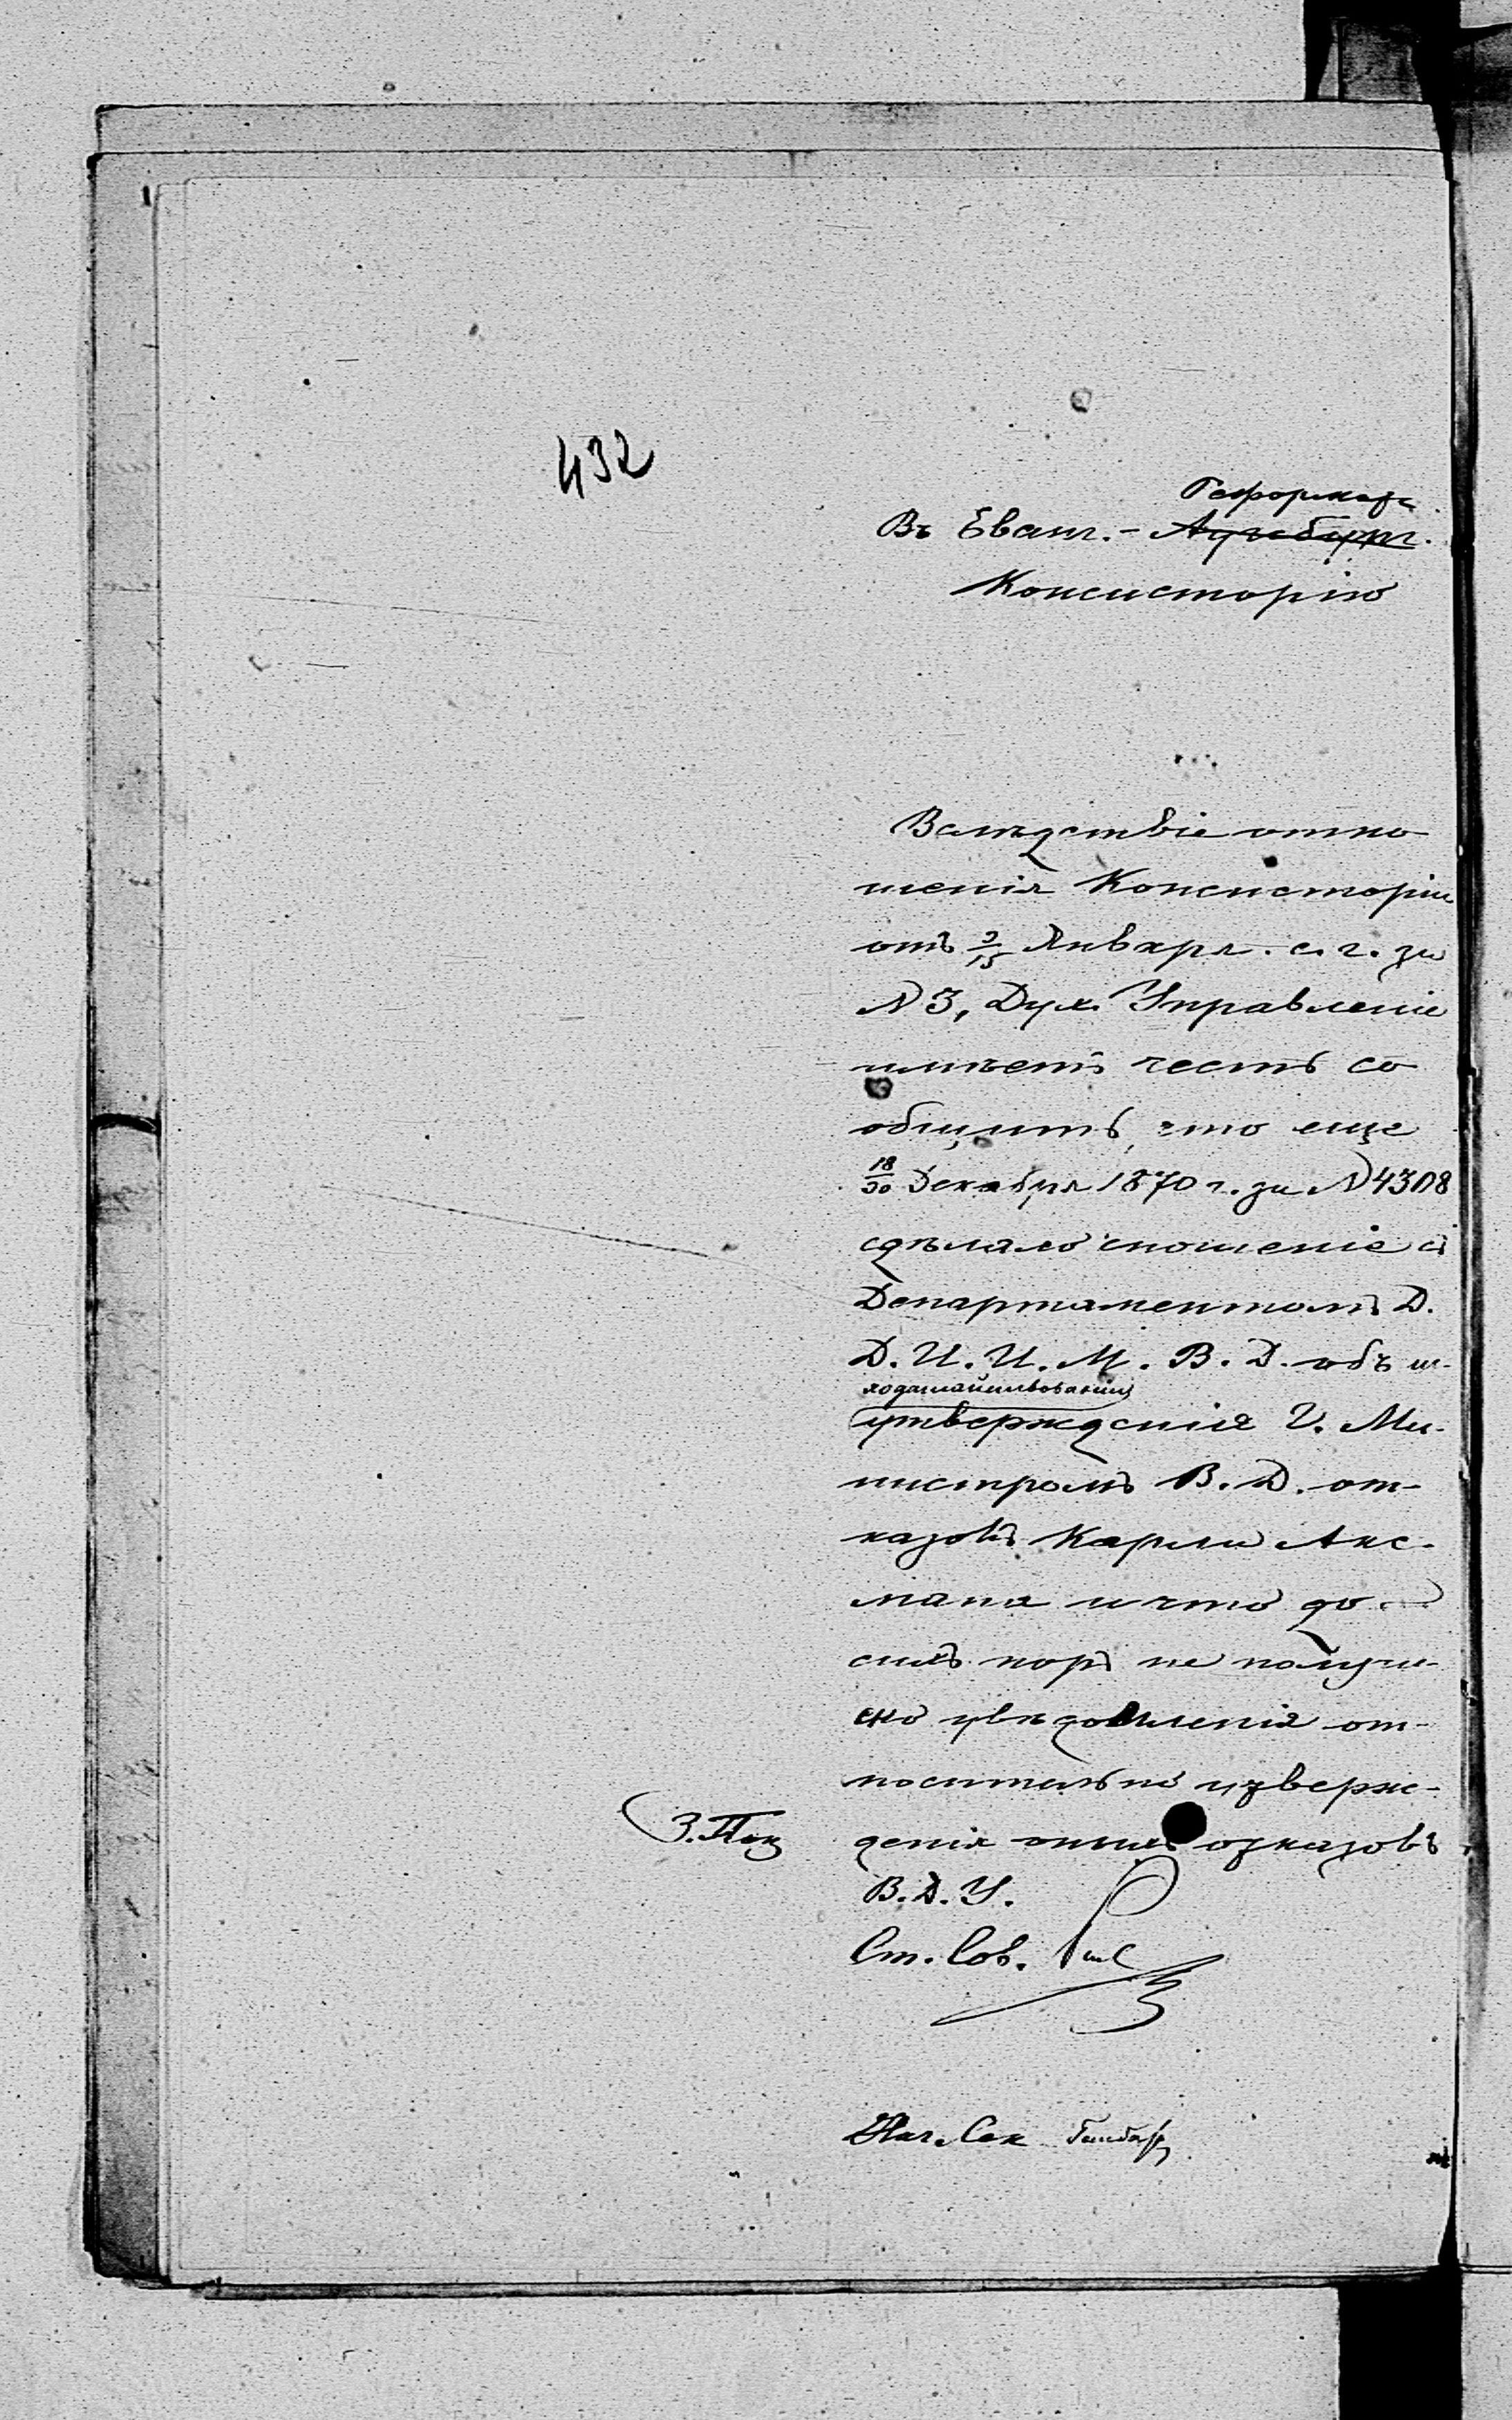 432
Реформатс
Въ Еванг.- Аугсбург.
Консисторію
Вслѣдствіе отно
шенія Консисторіи
отъ 3/15 Января с. г. за
№ 3, Дух. Управленіе
имѣетъ честь со
общить, что еще
18/30 Декабря 1870 г. за № 4308
сдѣлало сношеніе съ
Департаментомъ Д.
Д. И. И. М. В. Д. объ ис-
ходатайствованіи
утвержденія Г. Ми-
нистромъ В. Д. от-
казовъ Карла Акс-
мана и что до
сихъ поръ не получ-
ено увѣдомленія от-
носительно утверж-
З. Пок денія отказовъ
В. Д. У.
Ст. Сов.
Нач. Сек